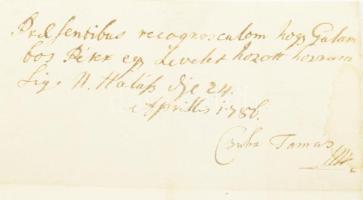 Præsentibus recognosculom hogy Galam
bos Péter egy Levelet hozott hozzam
Sig. N. Halász die 24.
Aprilis 1786.
Csuba Tamás